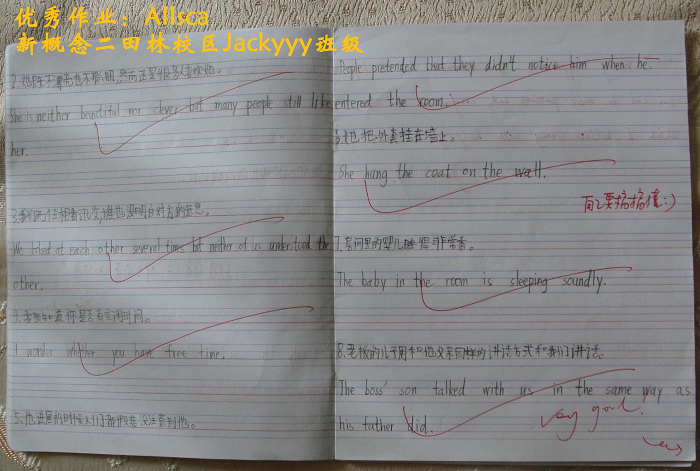 优秀作业：Allsca
新概念二田林校区Jackyyy班级
2.她既不漂亮也不聪明,然而还是很多人喜欢她。
She is neither beautiful nor clever but many people still like
her.
3.我们两个互相看几次,谁也没明白对方的意思。
We looked at each other several times but neither of us understood the
other.
4.我想知道你是否有空闲时间。
I wonder whther you have free time.
5.他进屋的时候人们假装没注意到他。
People pretended that they didn't notice him when he
entered the room.
6.她把外套挂在墙上。
She hung the coat on the wall.
7.房间里的婴儿睡得非常香。
The baby in the room is sleeping soundly.
8.老板的儿子用和他父亲同样的讲话方式和我们讲话。
The boss' son talked with us in the same way as
his father did.
Very good.